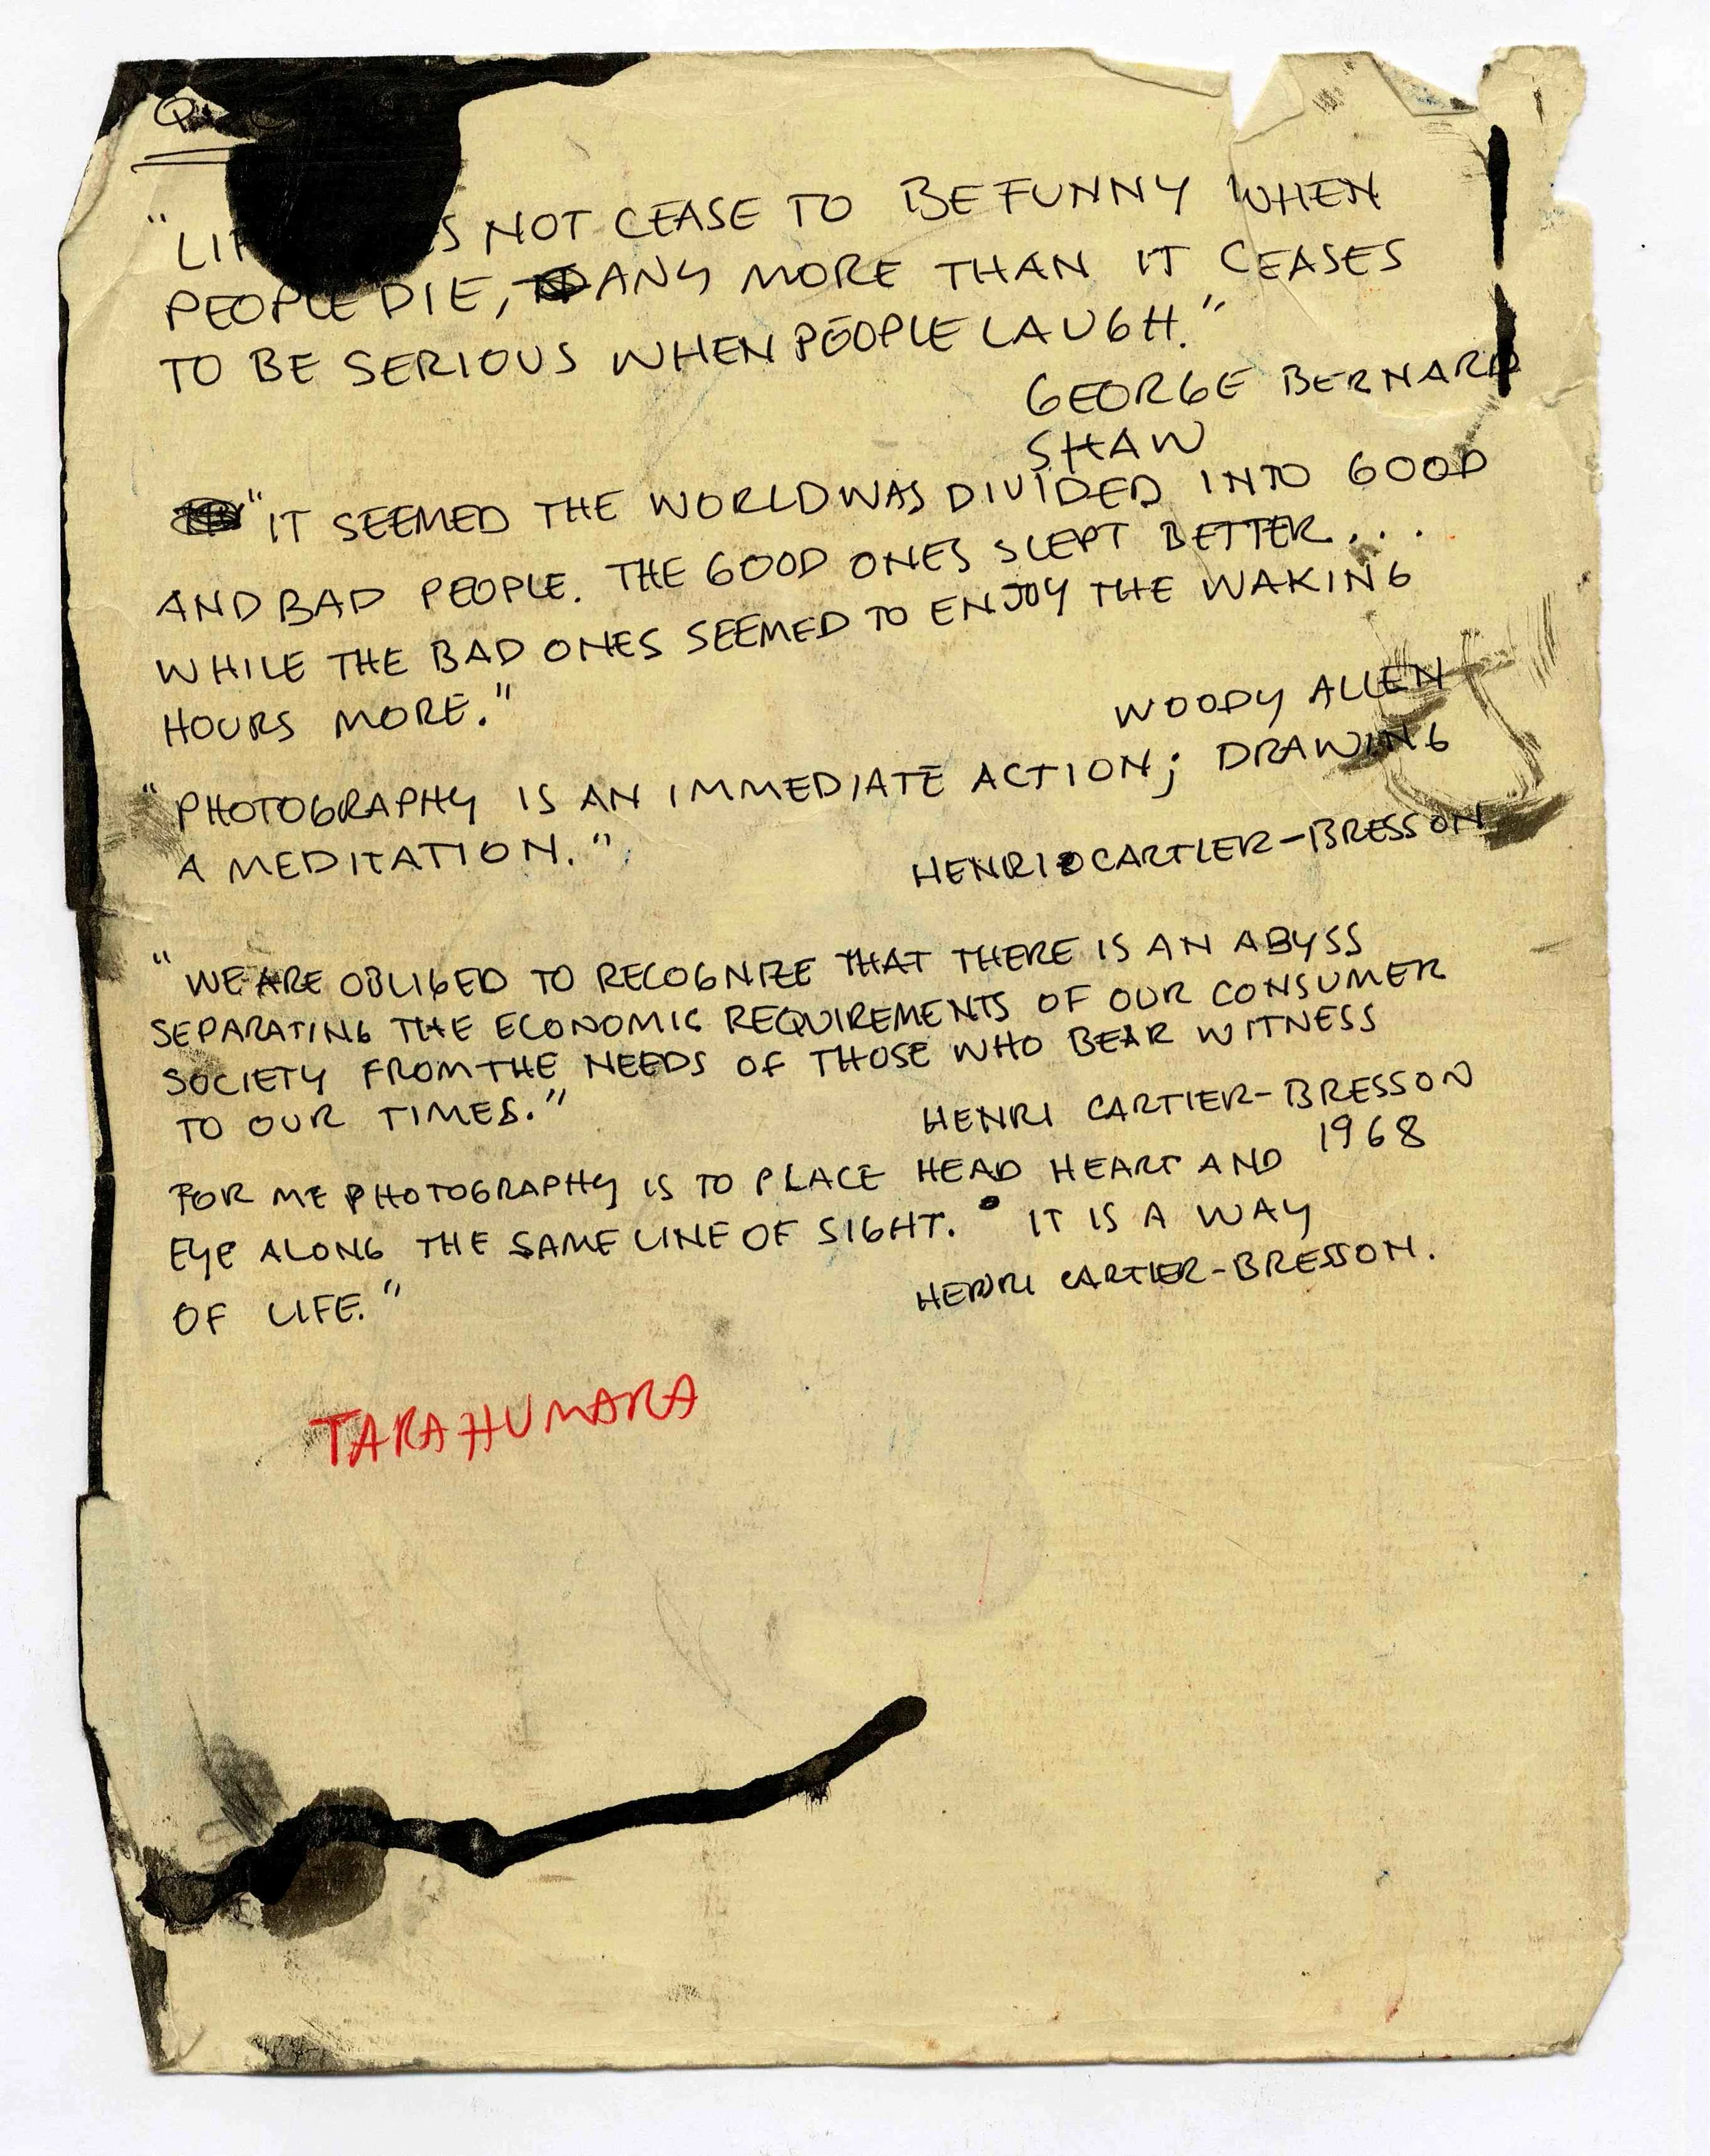 "LI S NOT CEASE TO BE FUNNY WHEN
PEOPLE DIE, ANY MORE THAN IT CEASES
TO BE SERIOUS WHEN PEOPLE LAUGH."
GEORGE BERNARD
SHAW
"IT SEEMED THE WORLD WAS DIVIDED INTO GOOD
AND BAD PEOPLE. THE GOOD ONES SLEPT BETTER...
WHILE THE BAD ONES SEEMED TO ENJOY THE WAKING
HOURS MORE."
WOODY ALLEN
"PHOTOGRAPHY IS AN IMMEDIATE ACTION; DRAWING
A MEDITATION."
HENRI CARTIER-BRESSON
"WE ARE OBLIGED TO RECOGNIZE THAT THERE IS AN ABYSS
SEPARATING THE ECONOMIC REQUIREMENTS OF OUR CONSUMER
SOCIETY FROM THE NEEDS OF THOSE WHO BEAR WITNESS
TO OUR TIMES."
HENRI CARTIER-BRESSON
1968
FOR ME PHOTOGRAPHY IS TO PLACE HEAD HEART AND
EYE ALONG THE SAME LINE OF SIGHT. IT IS A WAY
OF LIFE."
HENRI CARTIER-BRESSON.
TARAHUMARA